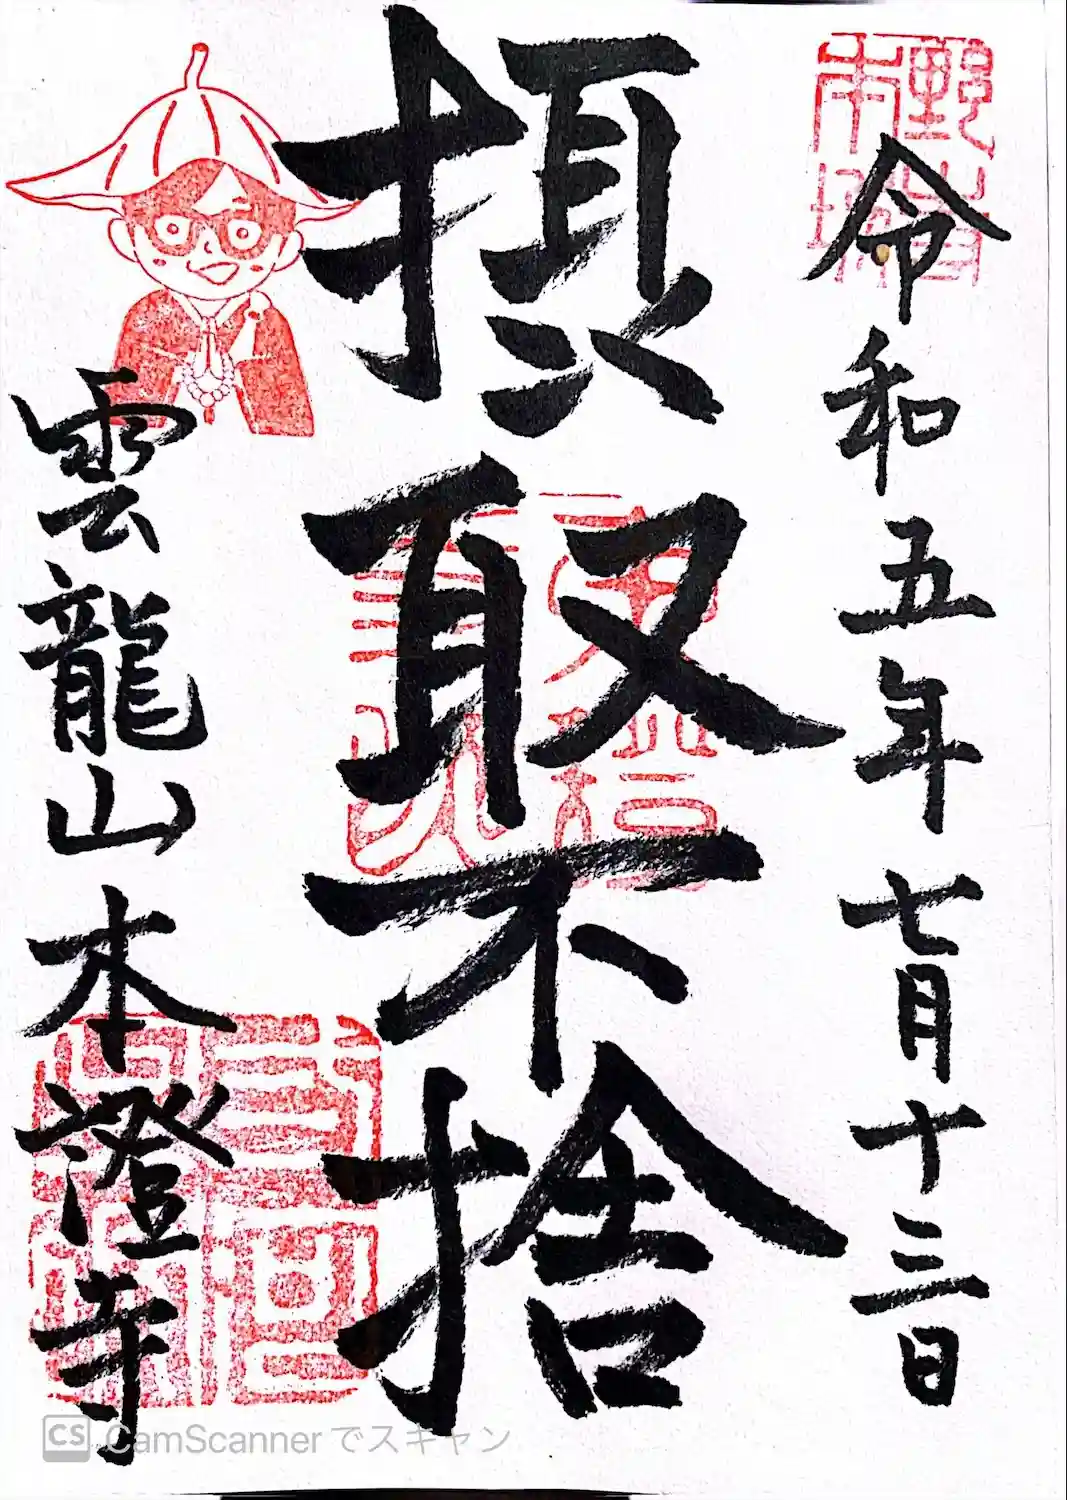 令和五年七月十三日
摂取不捨
雲龍山本證寺
CS CamScannerでスキャン